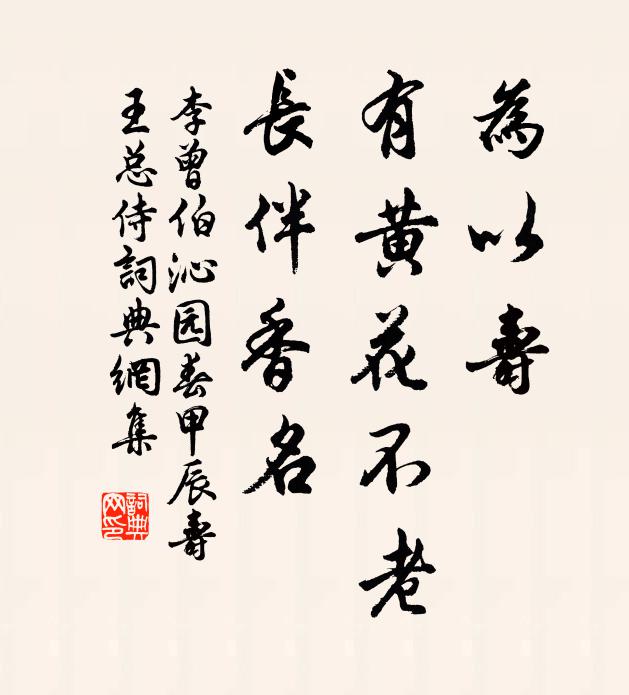 為以壽
有黄花不老
長伴香名
李曾伯沁园春甲辰壽
王总侍詞典網集
詞典
网印